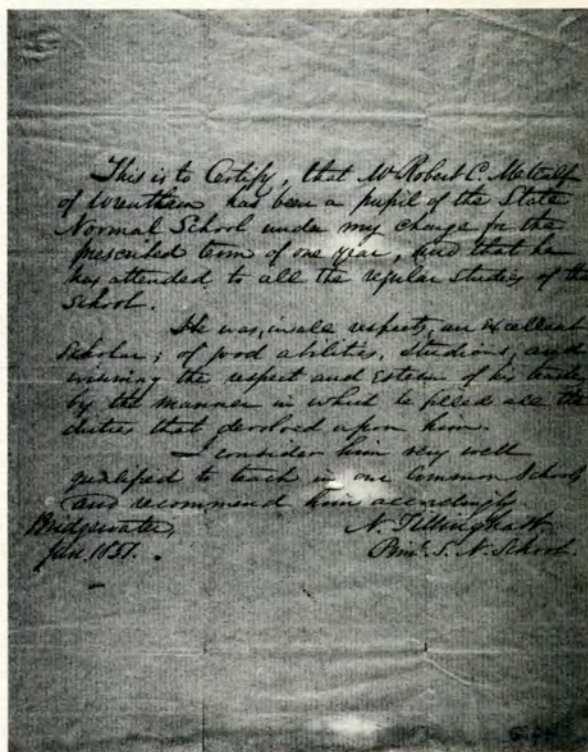 This is to Certify, that Mr Robert C. Metcalf
of Wrentham has been a pupil of the State
Normal School under my charge for the
prescribed term of one year, and that he
has attended to all the regular studies of the
School.
He was, in all respects, an excellent
Scholar; of good abilities, studious, and
winning the respect and esteem of his
by the manner in which he filled all the
duties that devolved upon him.
I consider him very well
qualified to teach in our Common Schools
and recommend him accordingly
Bridgewater, N. Tillinghast
1851. Prinl. S. N. School